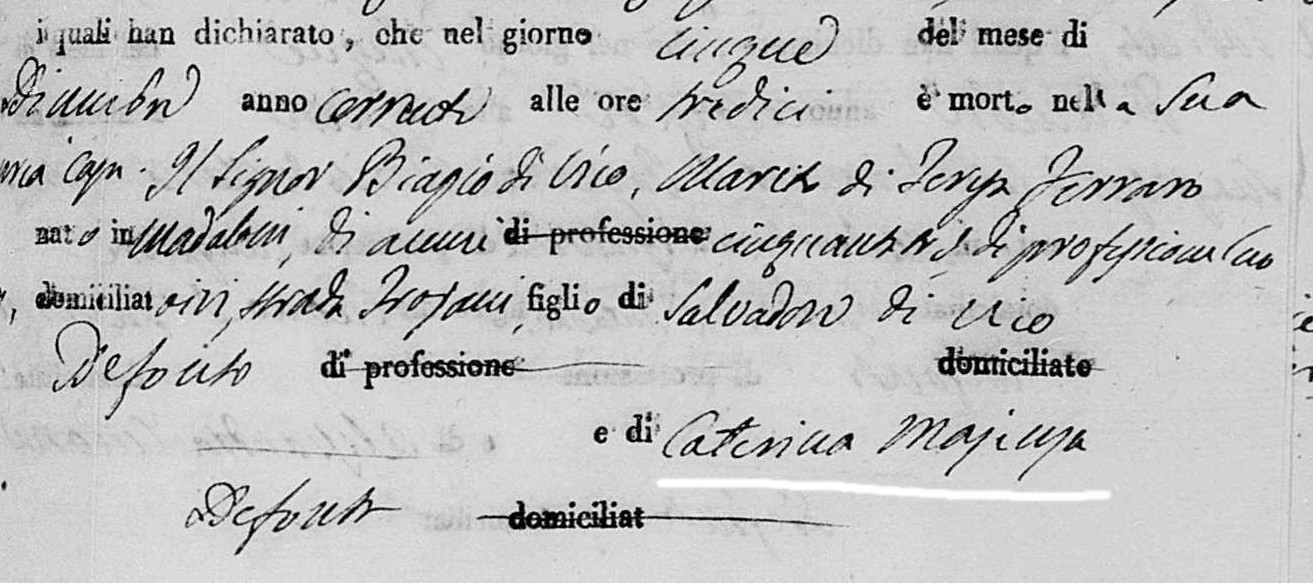 i quali han dichiarato, che nel giorno cinque del mese di
Dicembre anno corrente alle ore tredici è morto nella Sua
Il Signor Biagio di Urso, Marito di Teresa Ferraro
nato in di anni di professione cinquantatre di professione
domiciliato ivi, strada Trojani, figlio di Salvadore di Urso
Defonto di professione domiciliato
e di Caterina
Defonta domiciliat